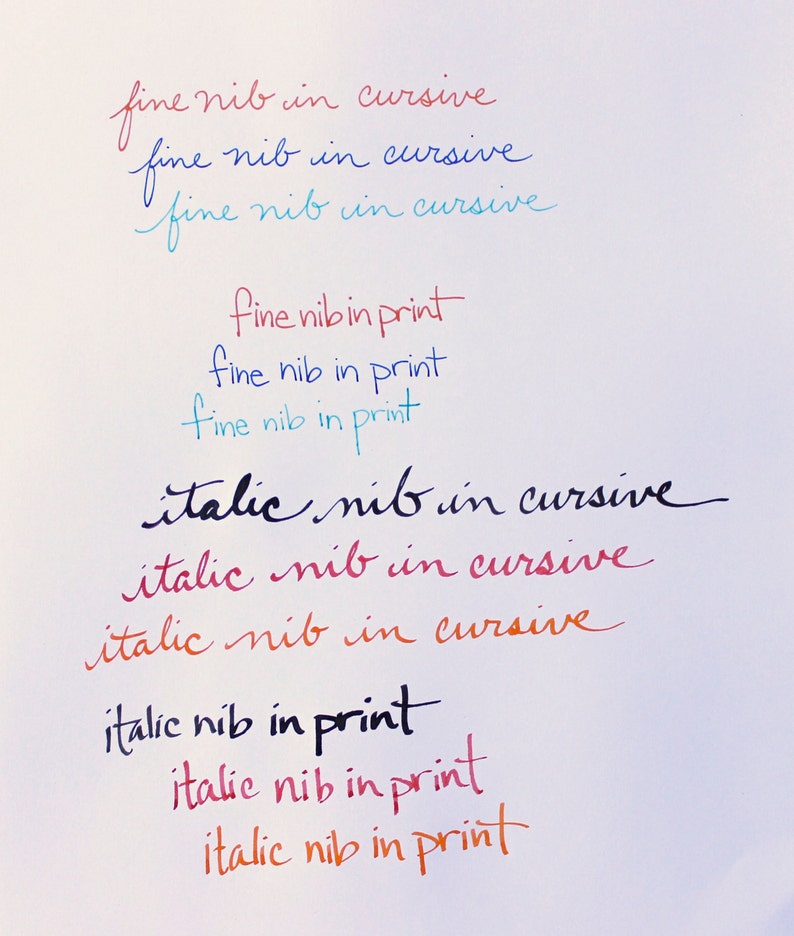 fine nib in cursive
fine nib in cursive
fine nib in cursive
fine nib in print
fine nib in print
fine nib in print
italic nib in cursive
italic nib in cursive
italic nib in cursive
italic nib in print
italic nib in print
italic nib in print